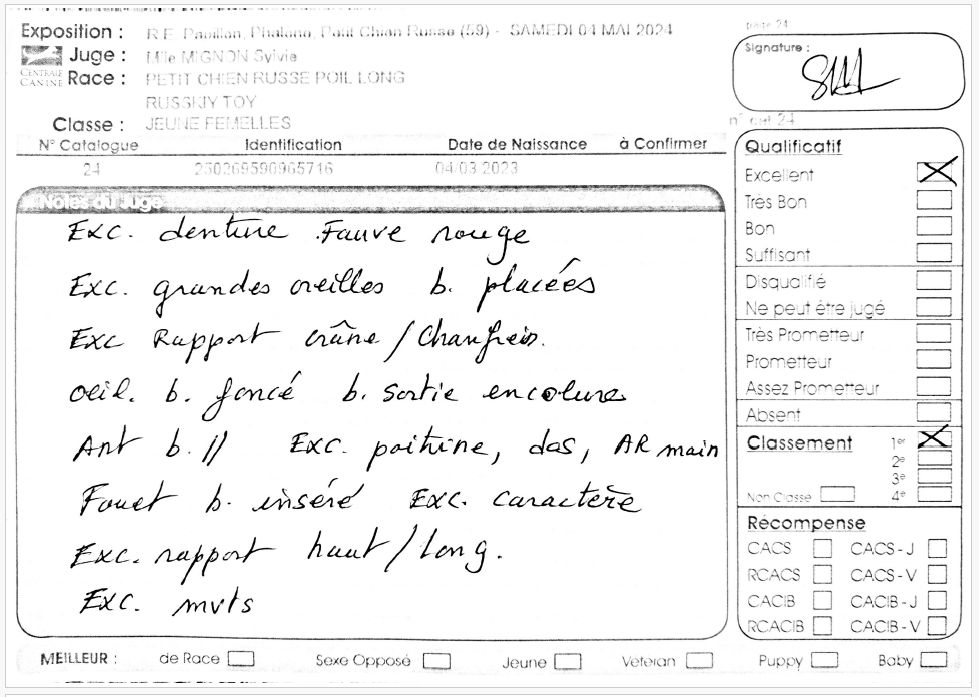 Exposition : R.E. Papillon, Phalene, Petit Chien Russe (59) - SAMEDI 04 MAI 2024
Juge : Mlle MIGNON Sylvie
CENTRALE CANINE
Race : PETIT CHIEN RUSSE POIL LONG
RUSSKIY TOY
Classe : JEUNE FEMELLES
24
Signature :
n° cat 24
N° Catalogue Identification Date de Naissance à Confirmer
24 250269590965716 04/03/2023
Notes du Juge
Exc. denture . Fauve rouge
Exc. grandes oreilles b. placées
Exc Rapport crâne / Chanfrein.
oeil. b. foncé b. sortie encolure
Ant b. // Exc. poitrine, dos, AR main
Fouet b. inséré Exc. caractère
Exc. rapport haut / long.
Exc. mvts
Qualificatif
Excellent
Tres Bon
Bon
Suffisant
Disqualifié
Ne peut être jugé
Très Prometteur
Prometteur
Assez Prometteur
Absent
Classement 1er
2e
3e
Non Classé 4e
Récompense
CACS CACS-J
RCACS CACS-V
CACIB CACIB-J
RCACIB CACIB-V
MEILLEUR : de Race Sexe Opposé Jeune Veteran Puppy Baby